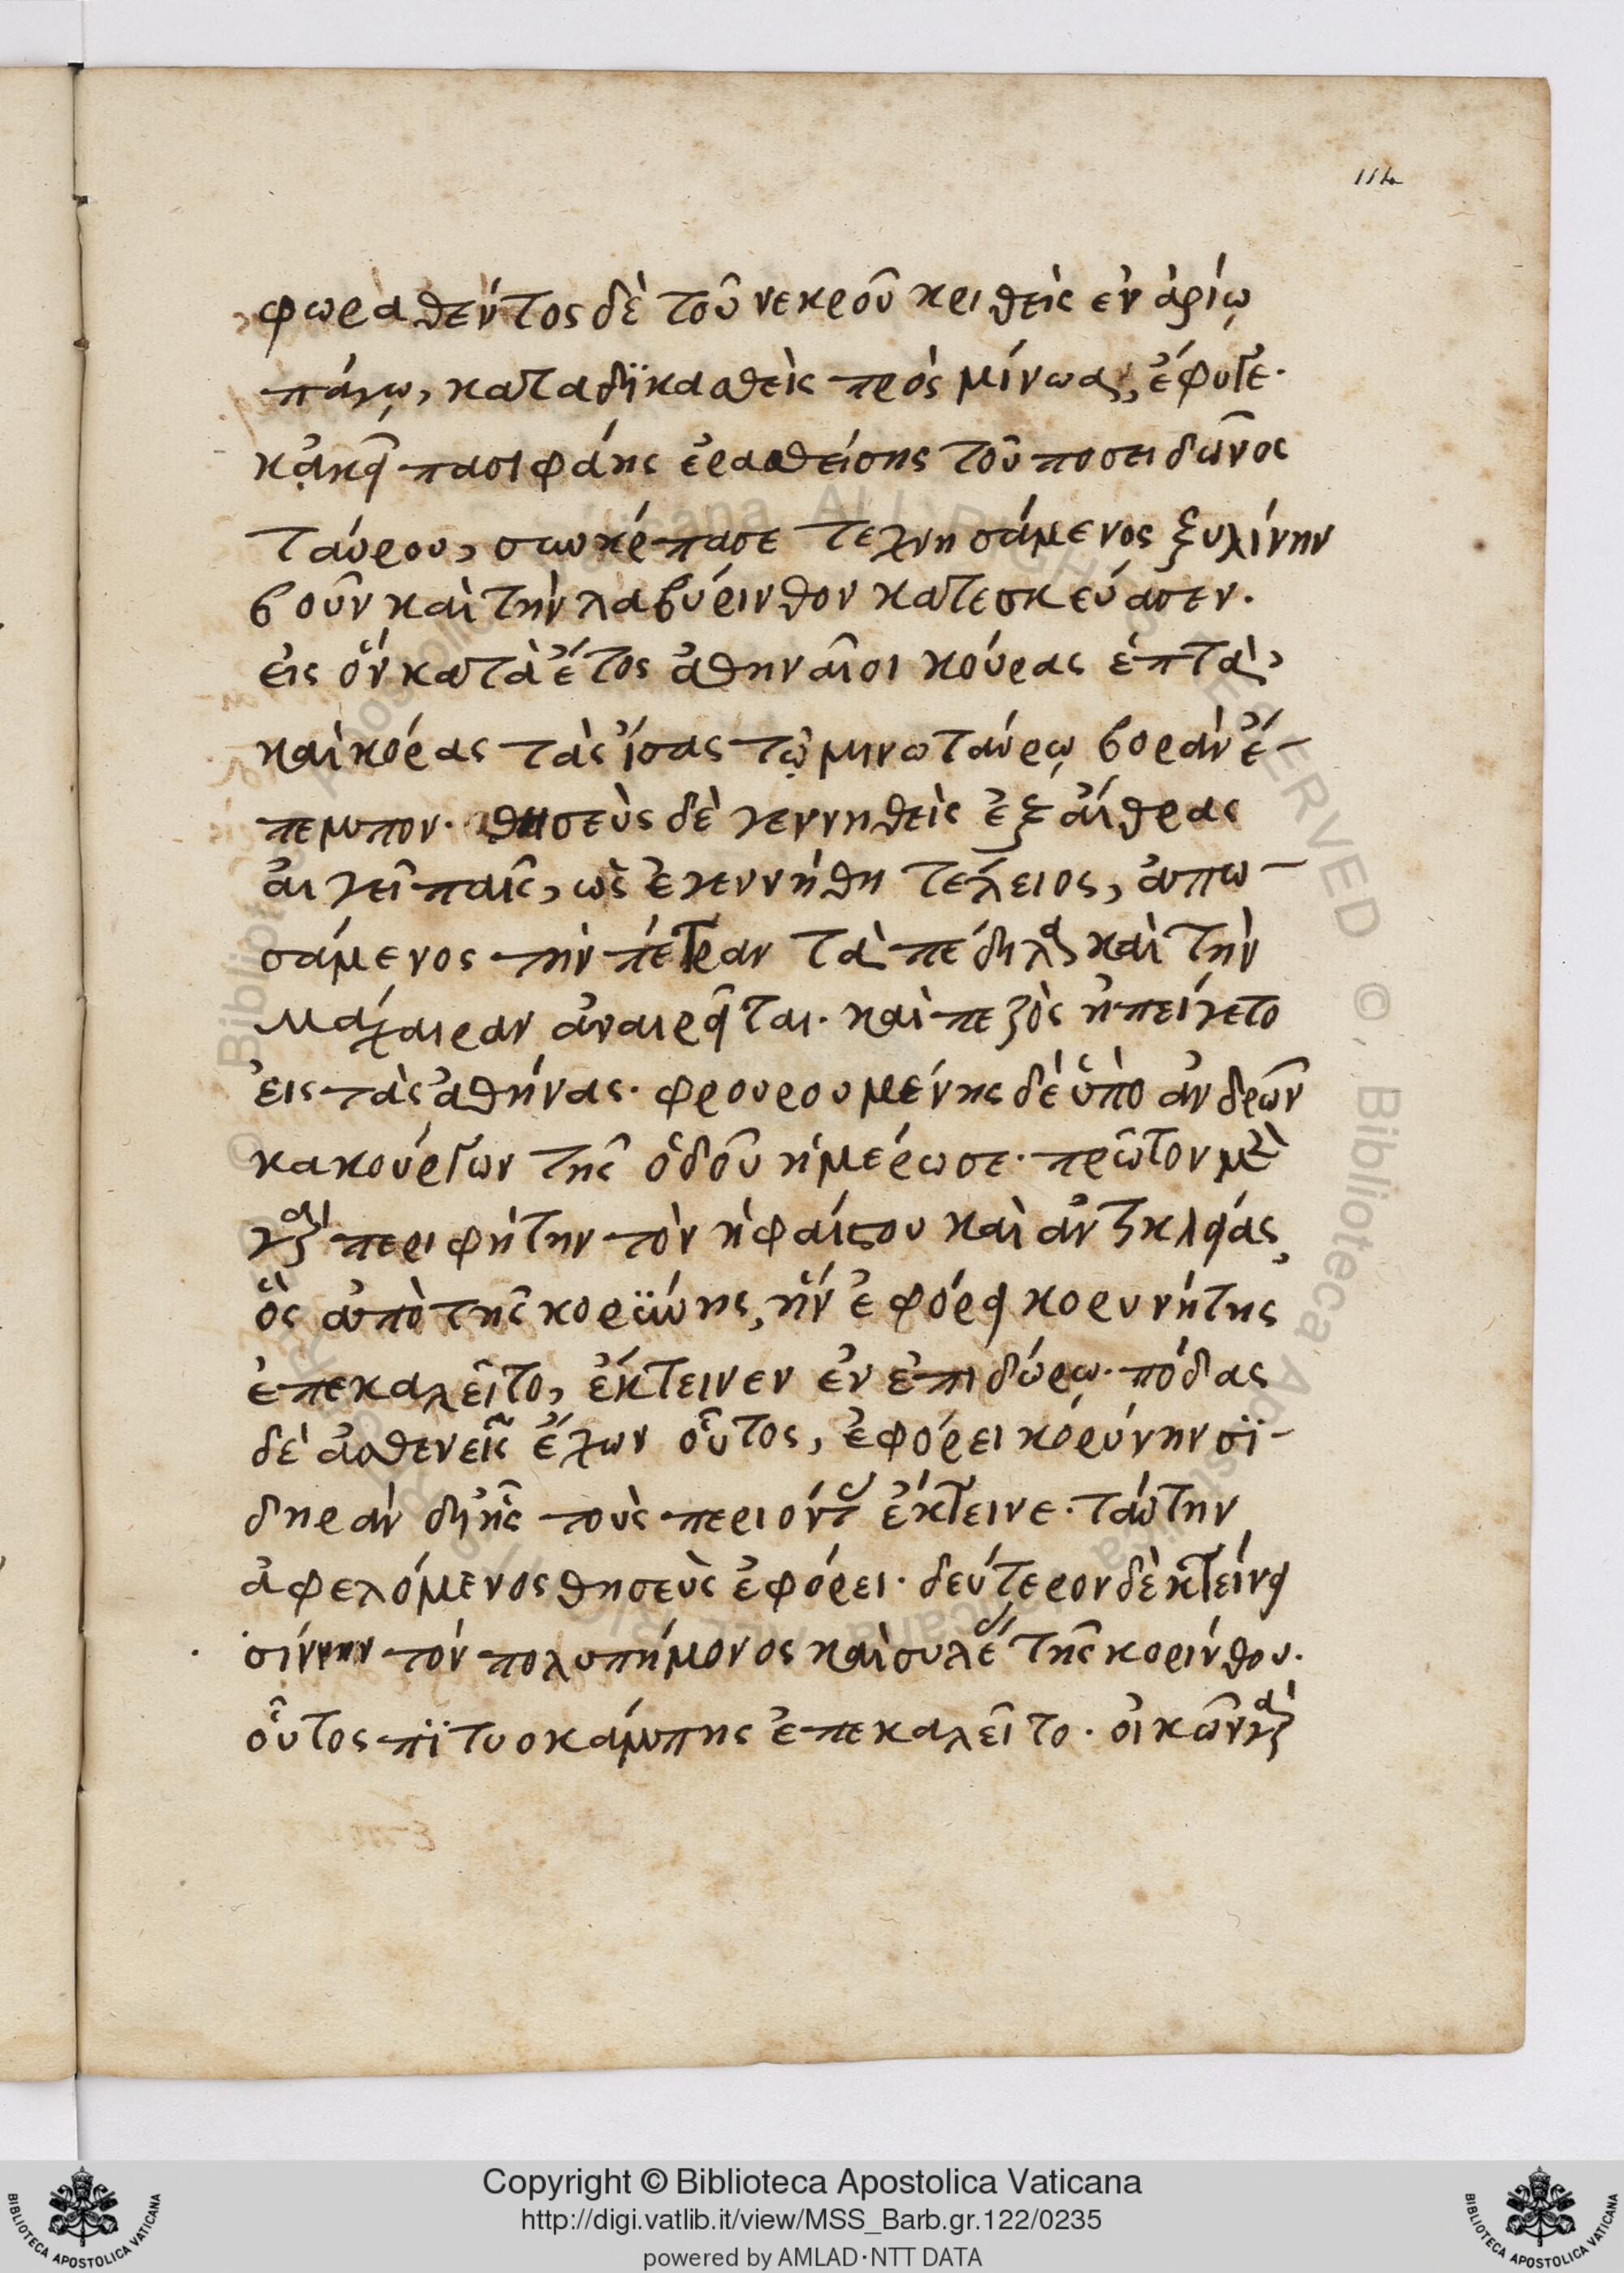 114
φωραθέντος δὲ τοῦ νεκροῦ κριθεὶς ἐν ἀρίῳ
πάγῳ, καταδϊκασθεὶς πρὸς μίνωα, ἔφυγε·
κἀκεῖ πασιφάης ἐρασθείσης τοῦ ποσειδῶνος
ταύρου, τεχνησάμενος ξυλίνην
βοῦν καὶ τὴν λαβύρινθον κατεσκεύασεν.
εἰς ὃν κατὰ ἔτος ἀθηναῖοι κούρας ἑπτὰ,
καὶ κόρας τὰς ἴσας τῷ μινωταύρῳ βορὰν ἔ-
πεμπον. θησεὺς δὲ γεννηθεὶς ἐξ αἴθρας
αἰγεῖ παῖς, ὡς ἐγεννήθη τέλειος, ἀπω-
σάμενος τὴν πέτραν τὰ πέδηλα καὶ τὴν
μάχαιραν ἀναιρεῖται. καὶ πεζὸς ἠπείγετο
εἰς τὰς ἀθήνας. φρουρουμένης δὲ ὑπὸ ἀνδρῶν
κακούργων τῆς ὁδοῦ ἡμέρωσε. πρῶτον μὲν
γὰρ περιφήτην τὸν ἡφαίστου καὶ ἀντικλείας,
ὃς ἀπὸ τῆς κορϋνης, ἣν ἐφόρει κορυνήτης
ἐπεκαλεῖτο, ἔκτεινεν ἐν ἐπιδύρῳ. πόδας
δὲ ἀσθενεῖς ἔχων οὗτος, ἐφόρει κορύνην σϊ-
δηρὰν δῑ ἧς τοὺς περιόντας ἔκτεινε. ταύτην
ἀφελόμενος θησεὺς ἐφόρει. δεύτερον δὲ κτείνει
σίννιν τὸν πολυπήμονος καὶ συλέας τῆς κορίνθου.
οὗτος πϊτυοκάμπης ἐπεκαλεῖτο. οἰκῶν γὰρ
Copyright © Biblioteca Apostolica Vaticana
http://digi.vatlib.it/view/MSS_Barb.gr.122/0235
powered by AMLAD·NTT DATA
BIBLIOTECA APOSTOLICA VATICANA
BIBLIOTECA APOSTOLICA VATICANA